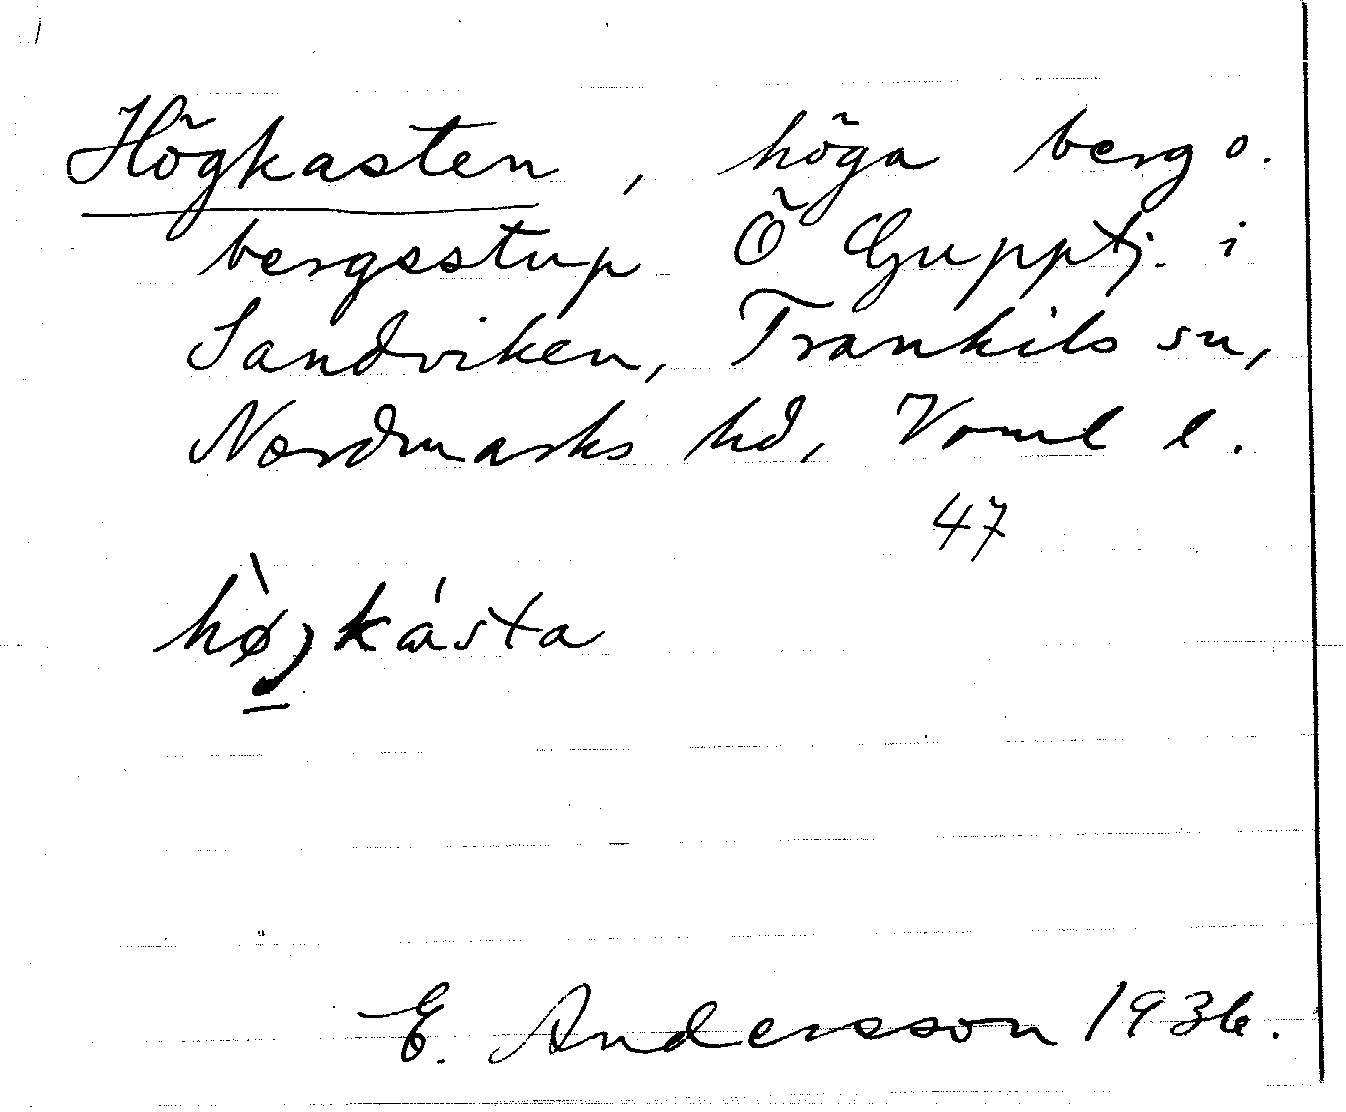 Högkasten, höga berg o.
bergsstup Ö Gupptj. i
Sandviken, Trankils sn,
Nordmarks hd, Vrml l.
47
hø̀jkásta
E. Andersson 1936.